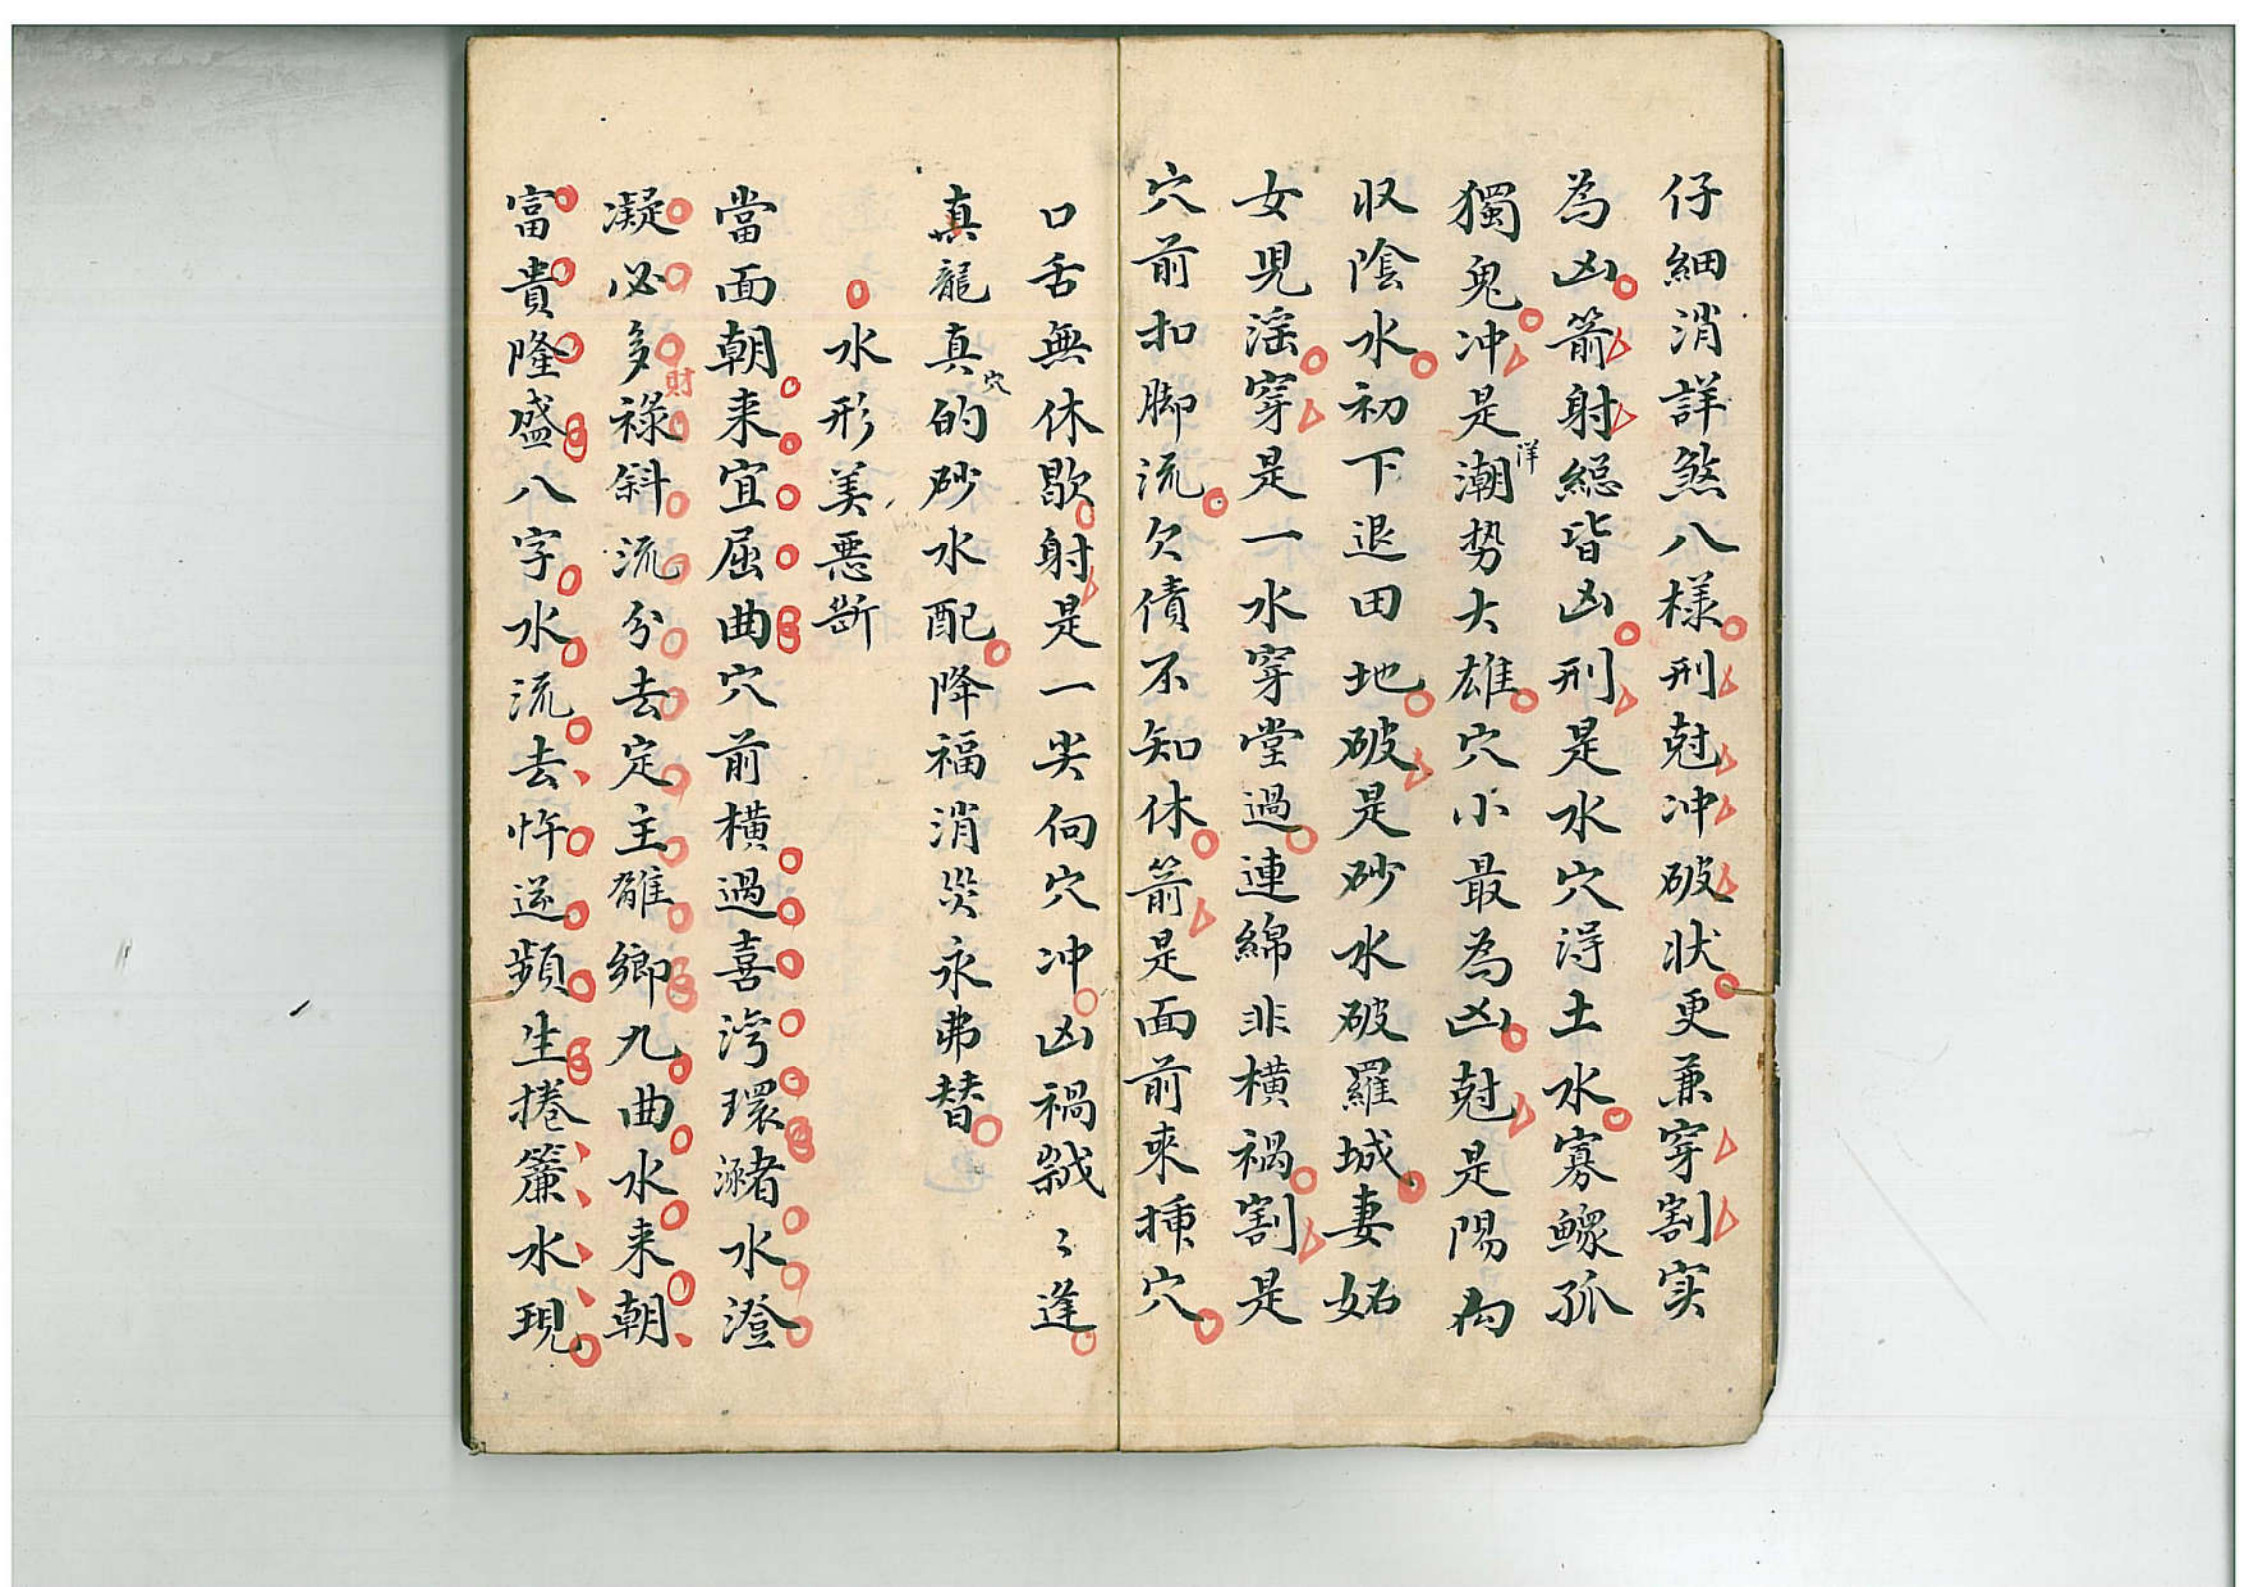 仔細消詳煞八樣刑尅冲破状更兼穿割实
為凶箭射総皆凶刑是水穴淂土水寡鰥孤
獨鬼冲是潮洋势大雄穴小最為凶尅是陽向
収陰水初下退田地破是砂水破羅城妻妬
女児滛穿是一水穿堂過連綿非橫禍割是
穴前扣脚流欠債不知休箭是面前來揰穴
口舌無休歇射是一尖向穴冲凶禍誐〻逢
真龍真穴的砂水配降福消災永弗替
水形美惡斷
當面朝来宜屈曲穴前橫過喜湾環瀦水澄
凝必多財祿斜流分去定主離鄉九曲水来朝
富貴隆盛八字水流去忤逆頻生捲簾水現